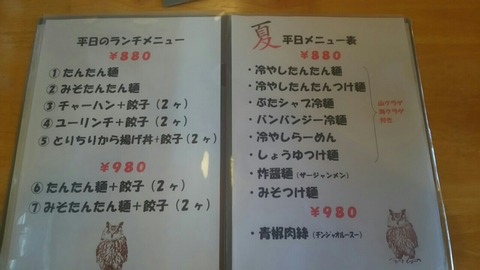 平日のランチメニュー
￥880
① たんたん麺
② みそたんたん麺
③ チャーハン＋餃子（2ヶ）
④ ユーリンチ＋餃子（2ヶ）
⑤ とりちりから揚げ丼＋餃子（2ヶ）
￥980
⑥ たんたん麺＋餃子（2ヶ）
⑦ みそたんたん麺＋餃子（2ヶ）
夏 平日メニュー表
￥880
・冷やしたんたん麺
・冷やしたんたんつけ麺
・ぶたシャブ冷麺
・バンバンジー冷麺
・冷やしらーめん
・しょうゆつけ麺
・炸醤麺（ザージャンメン）
・みそつけ麺
￥980
・青椒肉絲（チンジャオルースー）